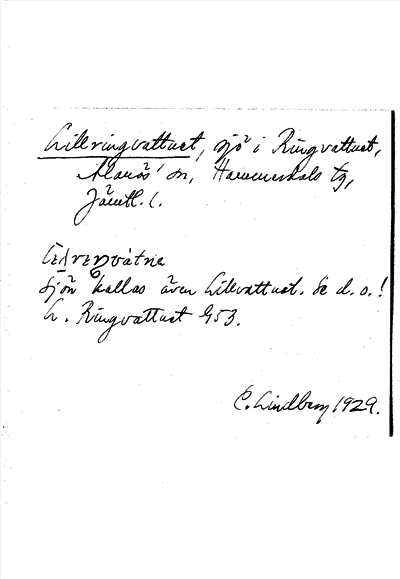 Lillringvattnet, sjö i Ringvattnet,
Alanäs' sn, Hammerdals tg,
Jämtl. l.
Sjön kallas även Lillvattnet. Se d. o.!
L. Ringvattnet 453.
C. Lindberg 1929.